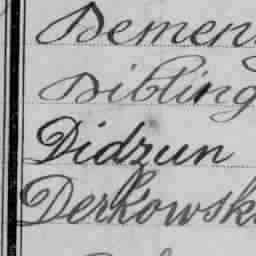 Demen
Dibling
Didzun
Derkowsk